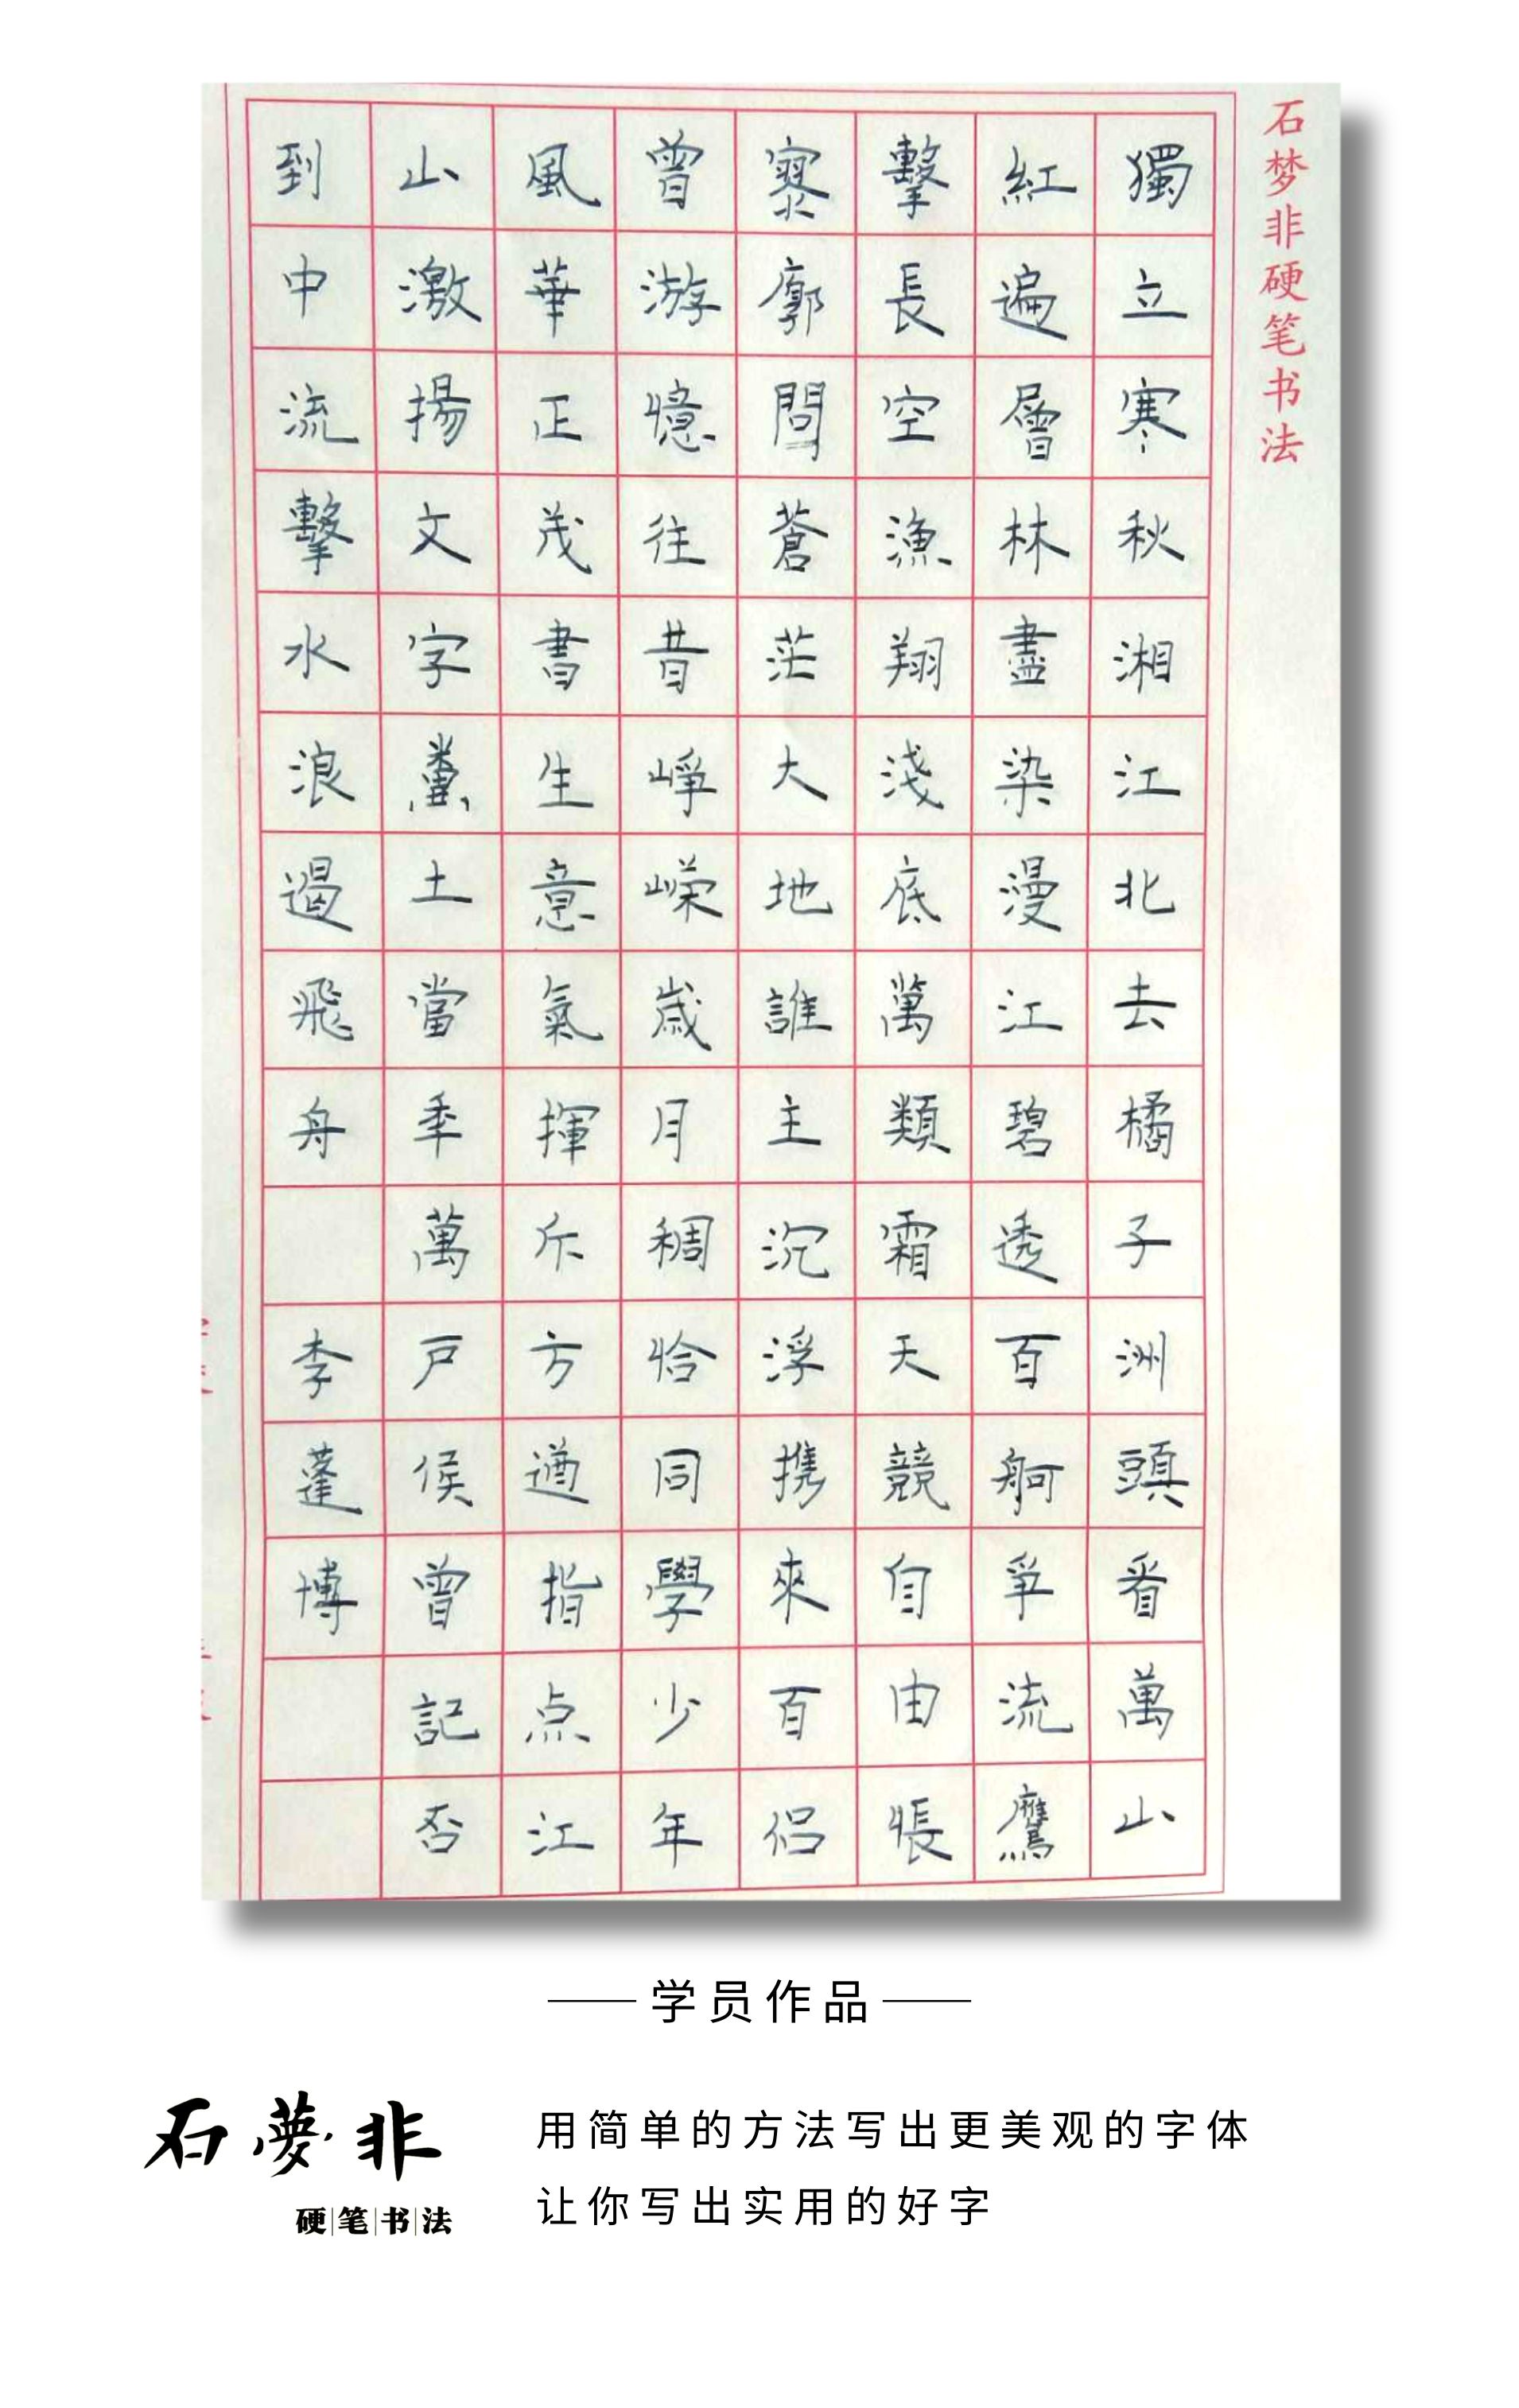 石梦非硬笔书法
獨立寒秋湘江北去橘子洲頭看萬山
紅遍層林盡染漫江碧透百舸爭流鷹
擊長空漁翔淺底萬類霜天競自由悵
寥廓問蒼茫大地誰主沉浮携來百侣
曾游憶往昔崢嶸歲月稠恰同學少年
風華正茂書生意氣揮斥方遒指点江
山激揚文字糞土當秊萬戶侯曾記否
到中流擊水浪遏飛舟 李蓬博
学员作品
石夢非
硬笔书法
用简单的方法写出更美观的字体
让你写出实用的好字